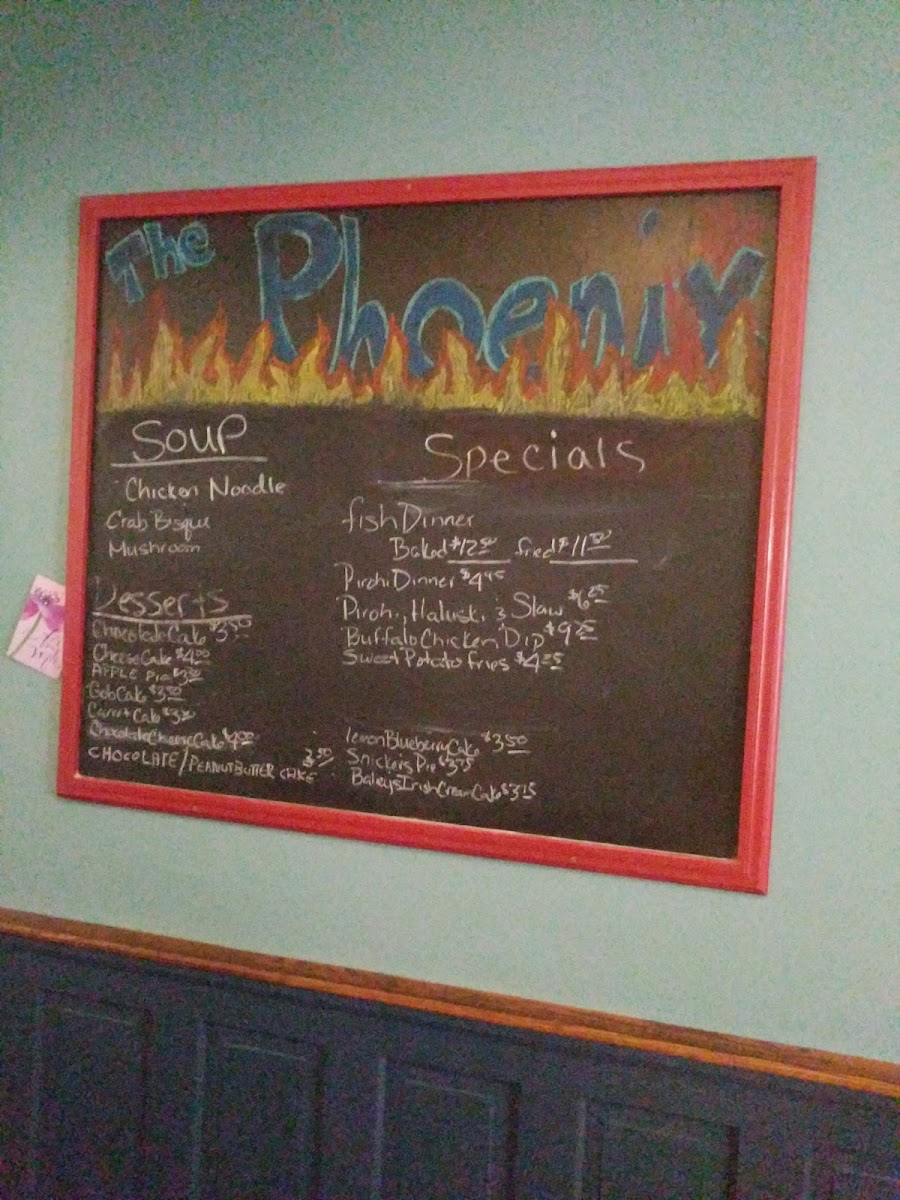 The Phoenix
Soup
Chicken Noodle
Crab Bisque
Mushroom
Desserts
Chocolate Cake $3.50
Cheese Cake $4.00
APPLE Pie $3.50
Gob Cake $3.50
Carrot Cake $3.50
Chocolate Cheese Cake $4.00
CHOCOLATE/PEANUT BUTTER CAKE $3.50
Specials
fish Dinner
Baked $12.00 fried $11.00
Pirohi Dinner $4.95
Pirohi, Haluski, & Slaw $6.25
Buffalo Chicken Dip $9.25
Sweet Potato fries $4.25
lemon Blueberry Cake $3.50
Snickers Pie $3.75
Baileys Irish Cream Cake $3.75